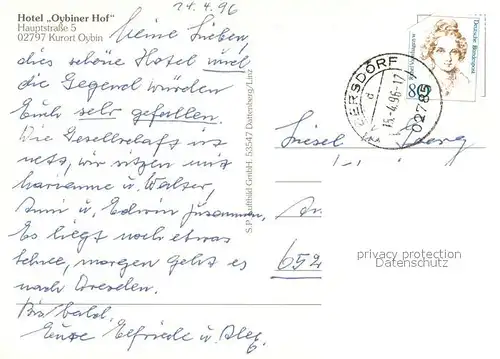 Hotel „Oybiner Hof"
Hauptstraße 5
02797 Kurort Oybin
14.4.96
Meine Lieben,
dies schöne Hotel und
die Gegend würden
Euch sehr gefallen.
Die Gesellschaft ist
nett, wir sitzen mit
Marianne u. Walter,
Anni u. Edwin zusammen.
Es liegt noch etwas
Schnee, morgen geht es
nach Dresden.
Bis bald.
Eure Elfriede u. Alex.
S.P. Luftbild GmbH 53547 Dattenberg/Linz
Deutsche Bundespost
80
ERSDORF
d
15.-4.96-17
02785
Liesel
652
privacy protection
Datenschutz